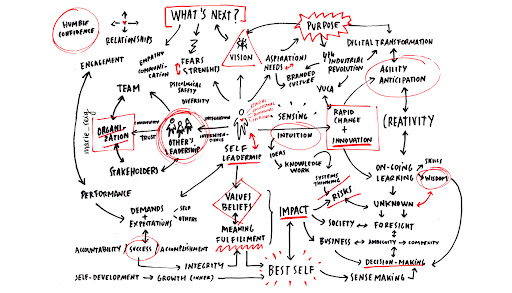 HUMBLE
CONFIDENCE
RELATIONSHIPS
WHAT'S NEXT?
PURPOSE
DIGITAL TRANSFORMATION
ENGAGEMENT
EMPATHY
COMMUNI-
CATION
FEARS
STRENGHTS
VISION
ASPIRATIONS
NEEDS
BRANDED
CULTURE
4TH
INDUSTRIAL
REVOLUTION
AGILITY
ANTICIPATION
TEAM
SAFETY
DIVERSITY
VUCA
ORGANI-
ZATION
TRUST
OTHER'S
LEADERSHIP
SELF
LEADERSHIP
SENSING
INTUITION
RAPID
CHANGE
+
INNOVATION
CREATIVITY
IDEAS
KNOWLEDGE
WORK
SYSTEMS
THINKING
STAKEHOLDERS
PERFORMANCE
DEMANDS
+
EXPECTATIONS
SELF
OTHERS
VALUES
BELIEFS
MEANING
FULFILLMENT
IMPACT
RISKS
ON-GOING
LEARNING
SKILLS
WISDOM
UNKNOWN
SOCIETY
FORESIGHT
BUSINESS
AMBIGUITY
COMPLEXITY
DECISION-MAKING
ACCOUNTABILITY
SUCCESS
ACCOMPLISHMENT
INTEGRITY
SELF-DEVELOPMENT
GROWTH (INNER)
BEST SELF
SENSE MAKING